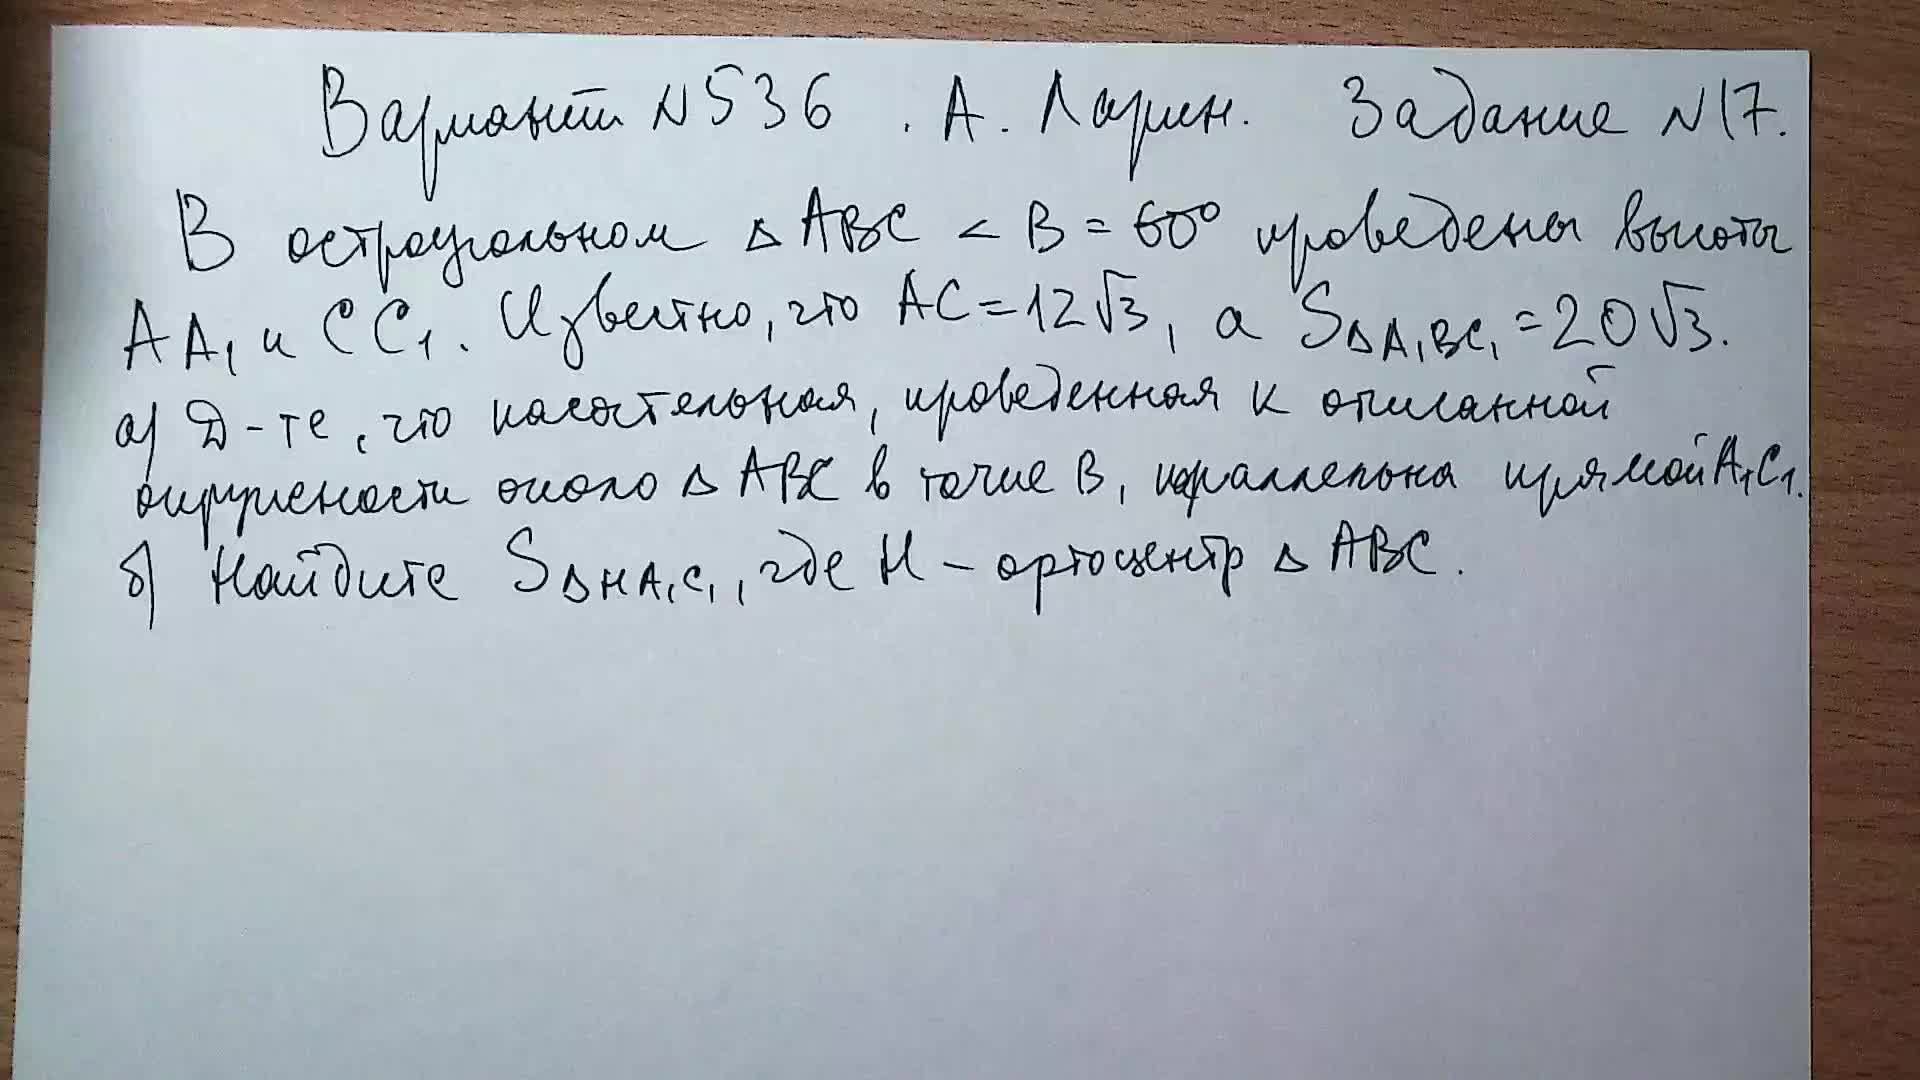 Вариант N536. А. Ларин. Задание N17.
В остроугольном △ABC < B = 60° проведены высоты
AA₁ и CC₁. Известно, что AC = 12√3, а S△A₁BC₁ = 20√3.
а) Д-те, что касательная, проведенная к описанной
окружности около △ABC в точке B, параллельна прямой A₁C₁.
б) Найдите S△HA₁C₁, где H – ортоцентр △ABC.